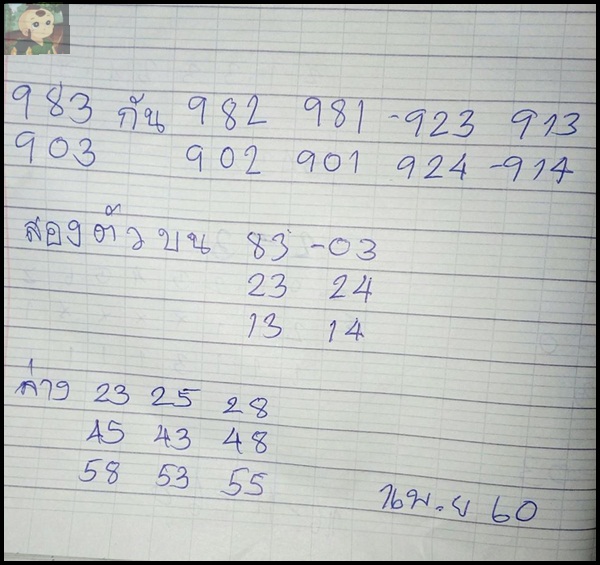 983 กัน 982 981 -923 913
903 902 901 924 -914
สองตัวบน 83 -03
23 24
13 14
ล่าง 23 25 28
45 43 48
58 53 55
1 พ.ย 60